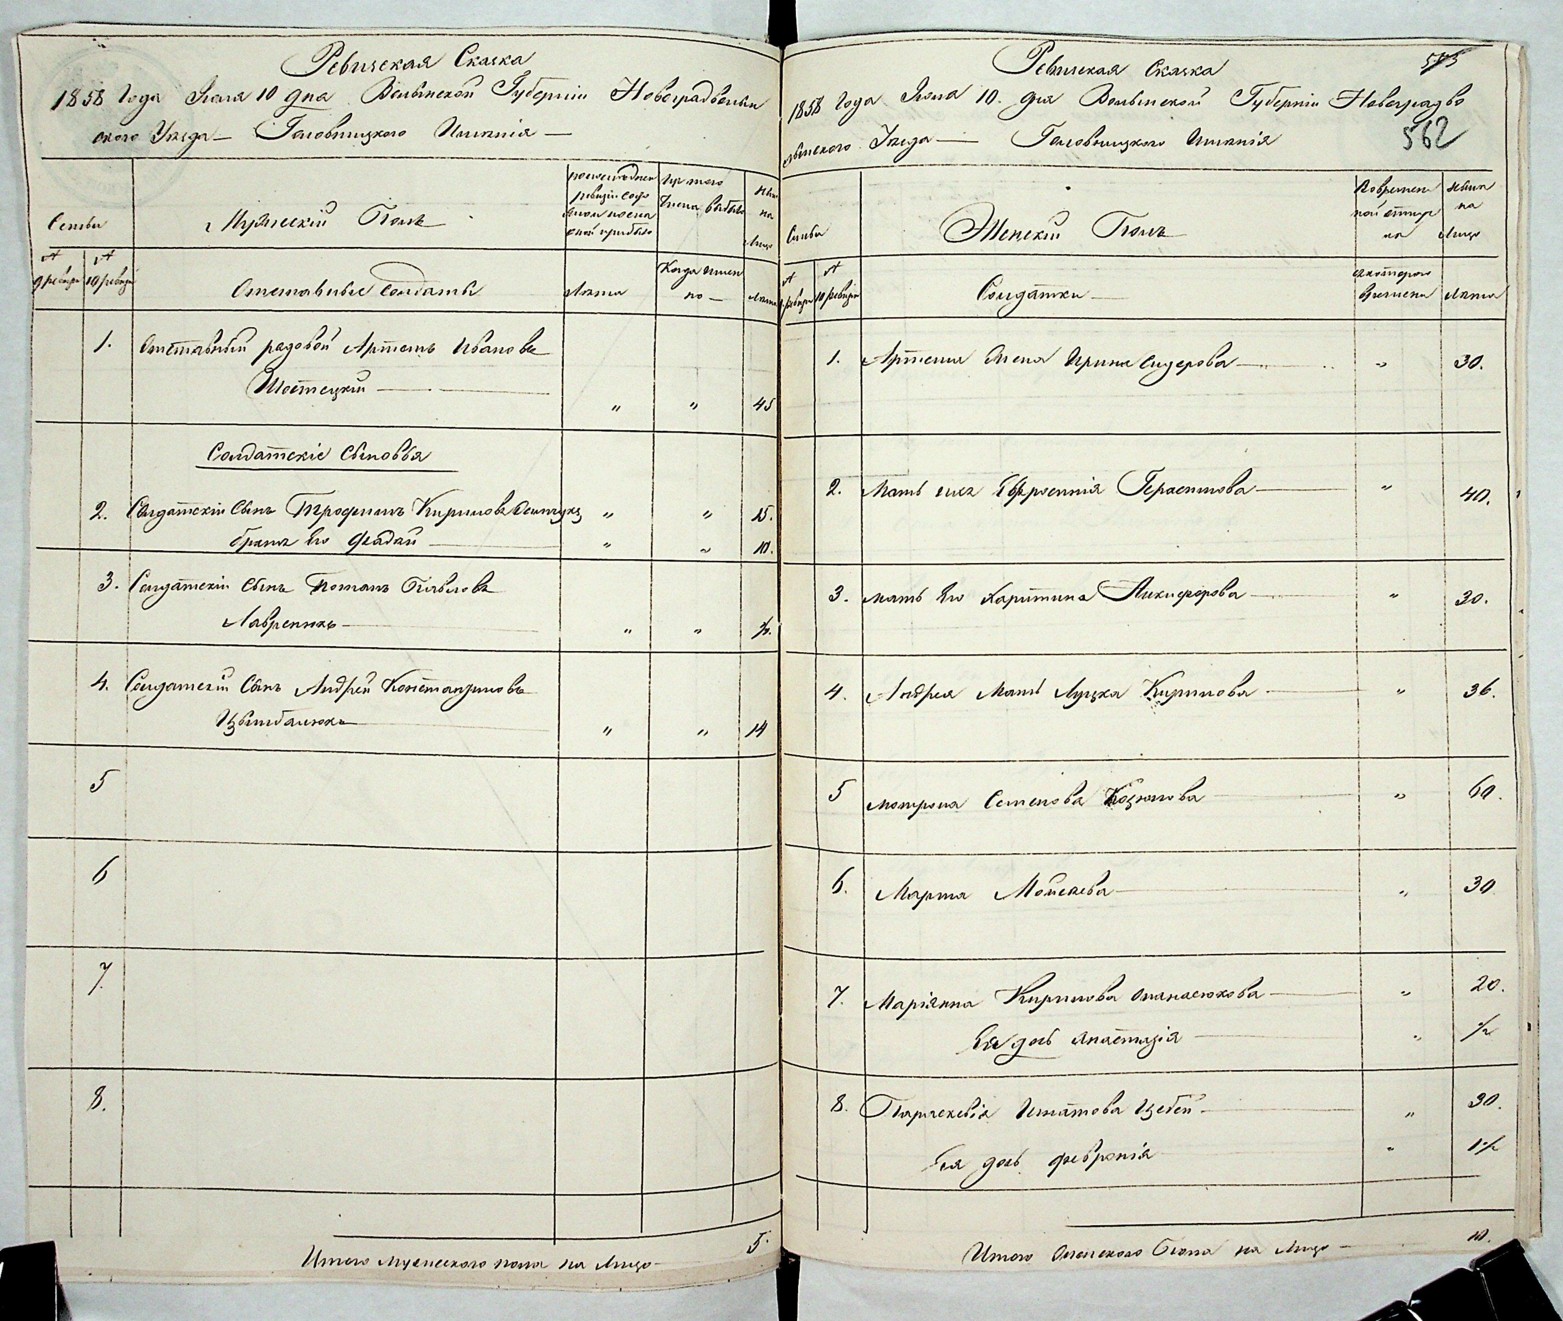 Ревизская Сказка
1858 Года Июля 10 дня Волынской Губерніи Новоградволын
ского Уезда — Головницкого Имѣнія —
Семьи
Мужескій Полъ
последней
ревизіи состо
прибыло
Изъ того
числа выбыло
Ныне
на
Лицо
№
9 ревизіи
№
10 ревизіи
Отставные Солдаты
Лѣта
Когда имен
но —
Лѣта
1. Отставный рядовой Артемъ Ивановъ
Шостецкій — „ „ 45
Солдатскіе Сыновья
2. Солдатскій Сынъ Трофимъ Кириловъ „ „ 15.
братъ его Фадей — „ „ 10.
3. Солдатскій Сынъ Романъ Павловъ
Лавренюкъ — „ „ ½.
4. Солдатскій Сынъ Андрей Константиновъ
Цымбалюкъ — „ „ 14
5
6
7.
8.
Итого мужеского пола на Лицо — 5.
575
Ревизская Сказка
1858 Года Июля 10. дня Волынской Губерніи Новоградво
лынского Уезда — Головницкого Имѣнія
562
Семьи
Женскій Полъ
Во времен
ной отлуч
ке
Ныне
на
Лицо
№
9 ревизіи
№
10 ревизіи
Солдатки —
С которого
времени
Лѣта
1. Артема жена Ирина Сидорова — „ 30.
2. Мать ихъ Ефросинія Герасимова — „ 40.
3. мать его Харитина Никифорова — „ 30.
4. Андрея Мать Луцка Кирилова — „ 36.
5 Мотрона Семенова Козюкова — „ 60.
6. Марта Мойсеева — „ 30
7. Маріянна Кирилова Опанасюкова — „ 20.
Ея дочь Анастазія — „ ½
8. Параскевія Игнатова Цебей — „ 30.
Ея дочь Февронія — „ 1½
Итого женского Пола на Лицо — 10.